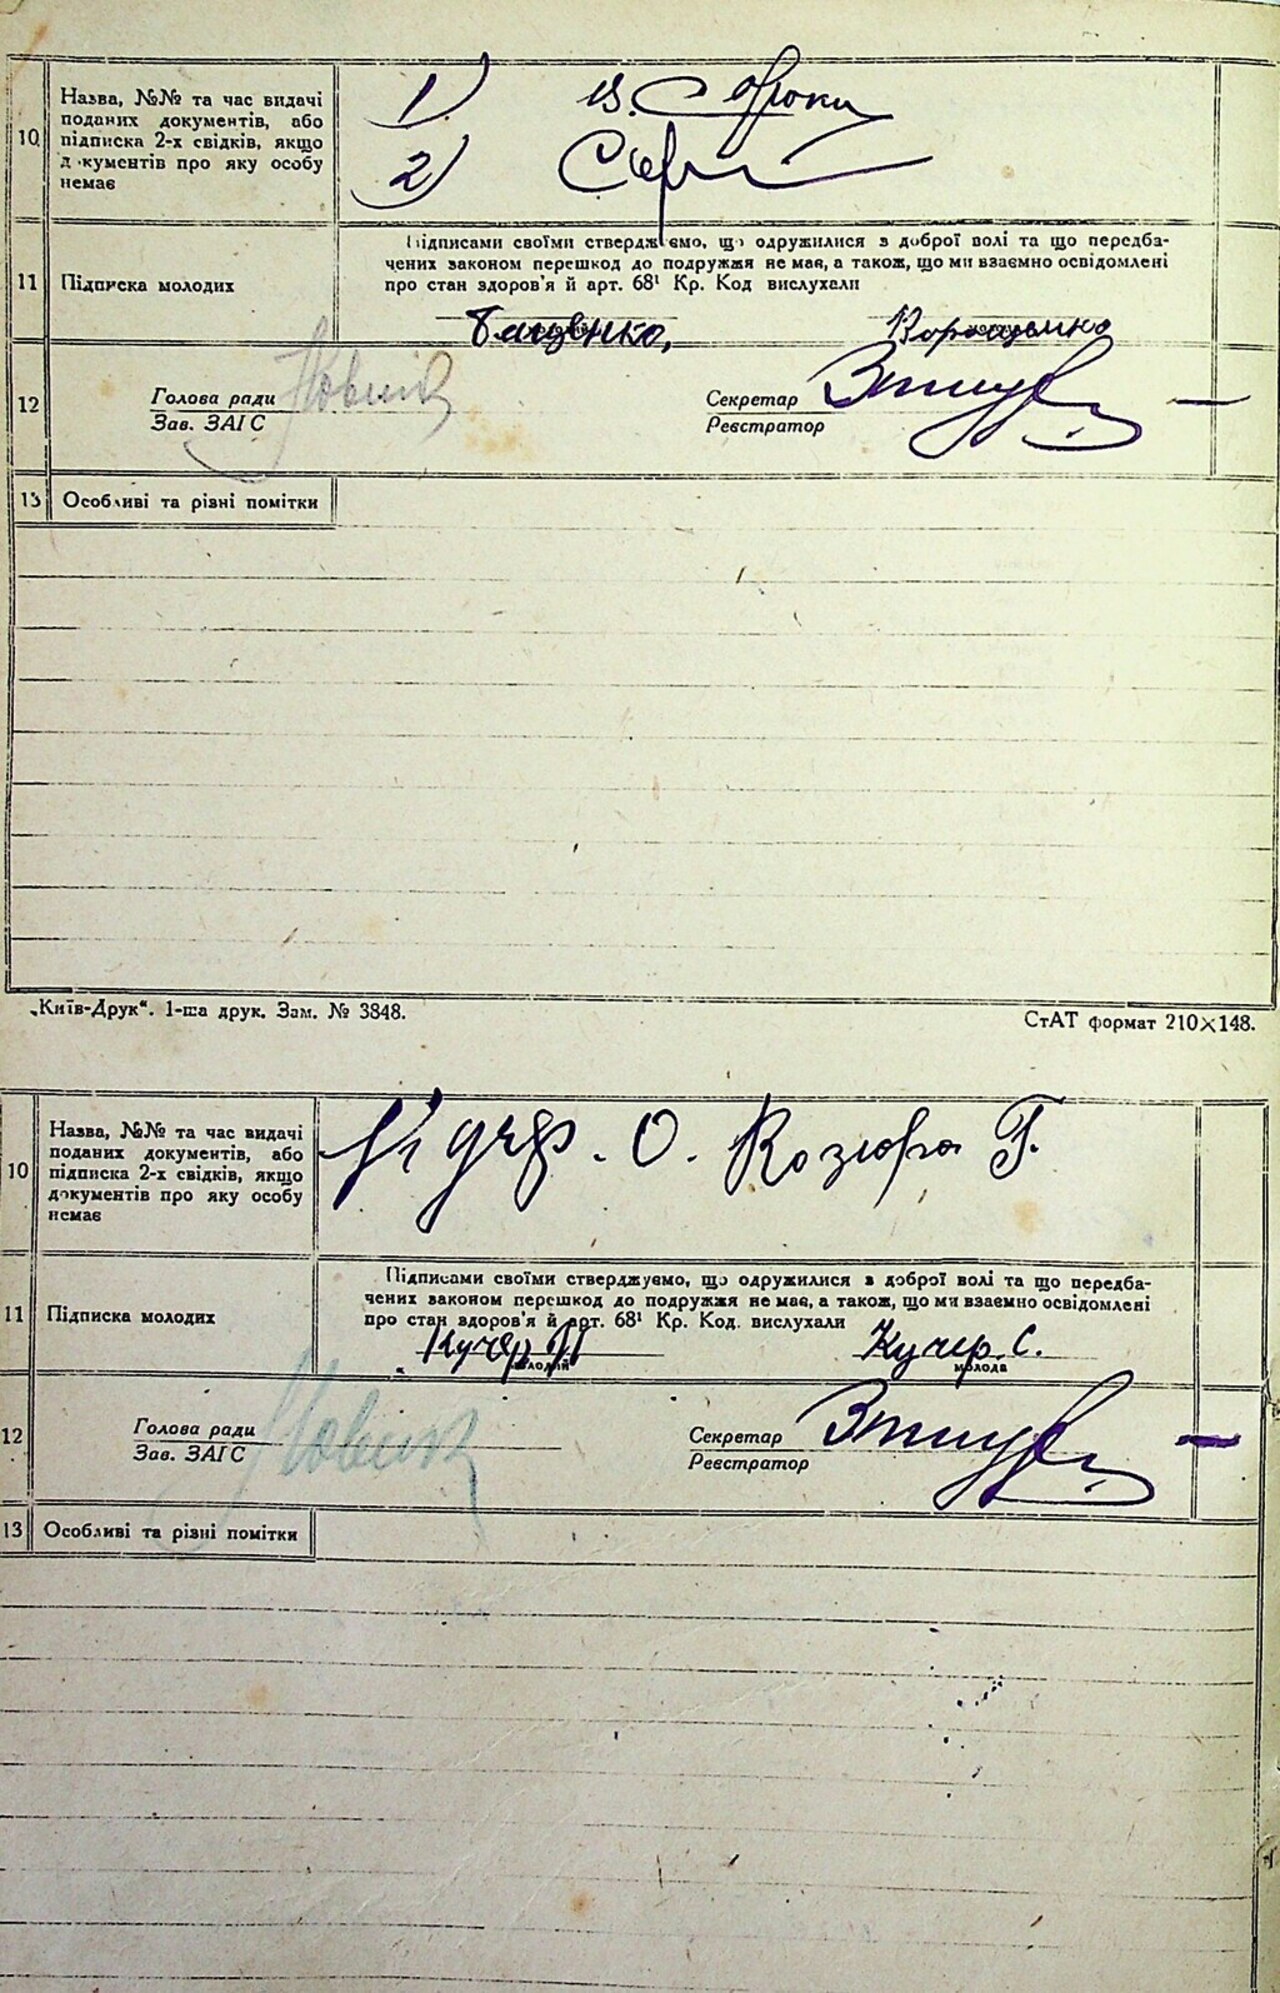 10
Назва, №№ та час видачі
поданих документів, або
підписка 2-х свідків, якщо
документів про яку особу
немає
1)
2)
11
Підписка молодих
Підписами своїми стверджуємо, що одружилися з доброї волі та що передба-
чених законом перешкод до подружжя не має, а також, що ми взаємно освідомлені
про стан здоров'я й арт. 68¹ Кр. Код вислухали
12
Голова ради Новик
Зав. ЗАГС
Секретар
Реєстратор
13
Особливі та різні помітки
„Київ-Друк“. 1-ша друк. Зам. № 3848.
СтАТ формат 210×148.
10
Назва, №№ та час видачі
поданих документів, або
підписка 2-х свідків, якщо
документів про яку особу
немає
Кучер. О. Козюра Г.
11
Підписка молодих
Підписами своїми стверджуємо, що одружилися з доброї волі та що передба-
чених законом перешкод до подружжя не має, а також, що ми взаємно освідомлені
про стан здоров'я й арт. 68¹ Кр. Код. вислухали
Кучер Кучер. С.
молодий молода
12
Голова ради Новик
Зав. ЗАГС
Секретар
Реєстратор
13
Особливі та різні помітки